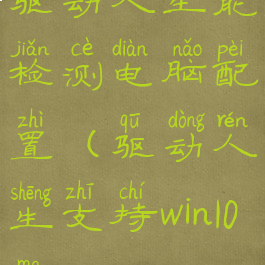 驱动人生能
jiǎn cè diàn nǎo pèi
检测电脑配
zhì qū dòng rén
置（驱动人
shēng zhī chí
生支持win10
ma